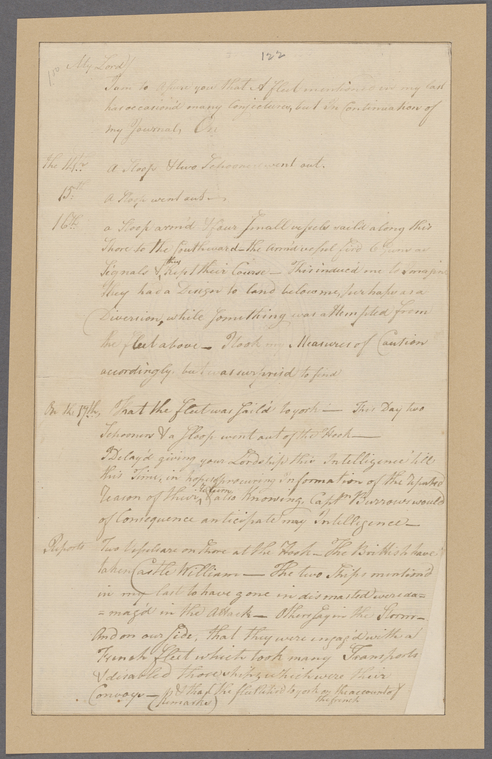 122
My Lord
I am to assure you that A fleet mentioned in my last
has occasion'd many Conjectures, but in Continuation of
my Journal, On
the 14th A Sloop & two Schooners went out.
15th A Sloop went out—
16th a Sloop arm'd & four small vessels sail'd along this
Shore to the Southward—the Arm'd vessel
Signals & they kept their Course— This induced me to
they have a Design to land below me, perhaps as a
Diversion, while something was attempted from
the fleet above— I took my Measures of Caution
accordingly, but was surprised to find
On the 17th, That the fleet was sail'd to york— This Day two
Schooners & a Sloop went out of the Hook—
I Delay'd giving your Lordship this Intelligence till
this Time, in hopes of procuring Information of the reputed
reason of their return, also knowing Captn Burrows would
of Consequence anticipate my Intelligence—
Reports Two top's are on Shore at the Hook— The British have
taken Castle William— The two Ships mention'd
in my last to have gone in dismasted were da=
=mag'd in the Attack— Others say in the Storm—
And on our side, that they were engag'd with a
French fleet which took many Transports
& disabled those ships which were their
Convoys— & that the fleet to york on the account of
the french
(Remarks)